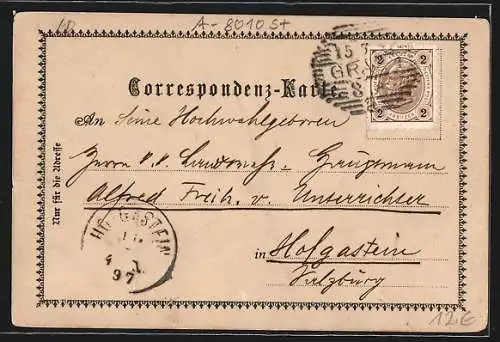 A-8010 St
15 7
GR
2 2
2 2
Correspondenz-Karte
An Seine Hochwohlgeboren
Herrn k.k. Landwehr-Hauptmann
Alfred Freih. v. Unterrichter
in Hofgastein
Salzburg
Nur für die Adresse
HOFGASTEIN
97
12€